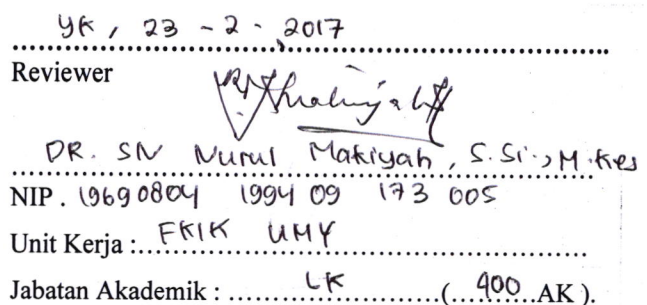 YK, 23 - 2 - 2017
Reviewer
DR. SN Nurul Makiyah, S.Si., M.Kes
NIP. 19690804 1994 09 173 005
Unit Kerja : FKIK UMY
Jabatan Akademik : LK (400 AK).